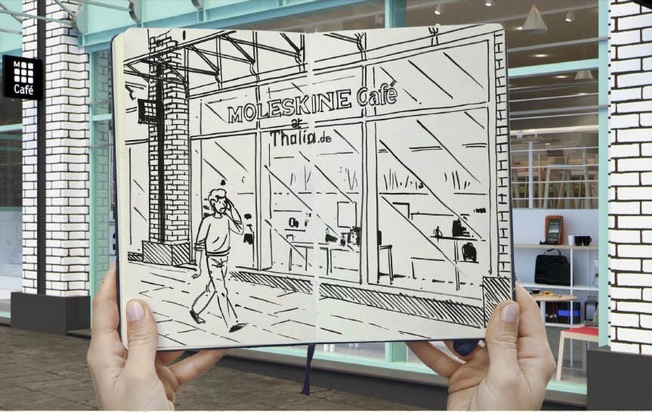 M
Café
MOLESKINE Café
at
Thalia.de